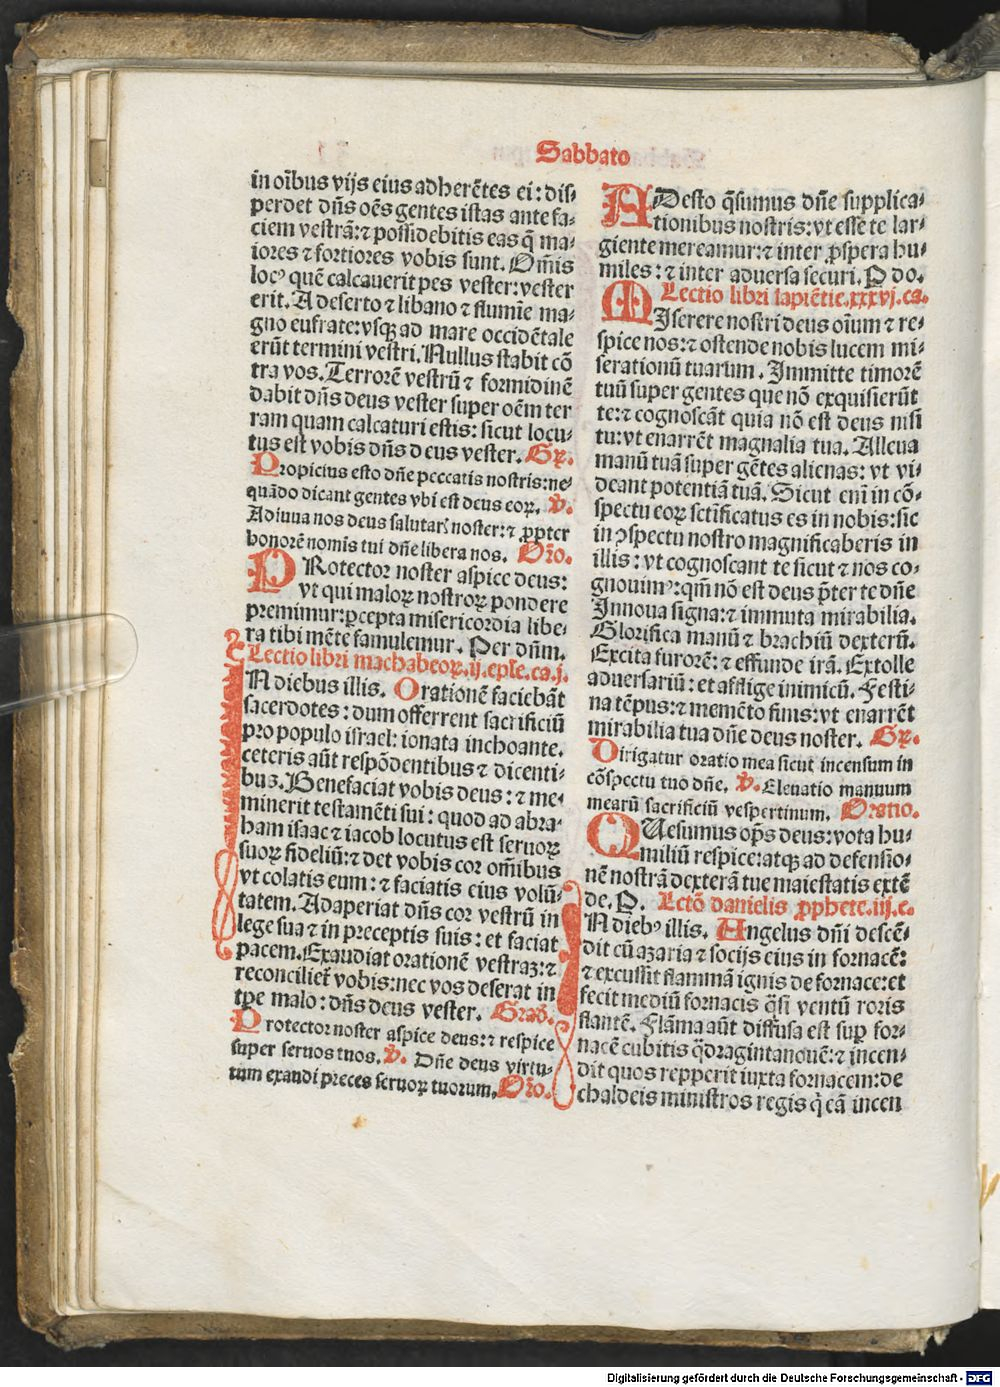 Sabbato
in oi̅bus vijs eius adhere̅tes ei: dis⸗
perdet dn̅s oe̅s gentes istas ante fa⸗
ciem vestra̅: ⁊ possidebitis eas q̅ ma⸗
iores ⁊ fortiores vobis sunt. Om̅is
locꝰ que̅ calcauerit pes vester: vester
erit. A deserto ⁊ libano ⁊ flumi̅e ma⸗
gno eufrate: vsqꝫ ad mare occide̅tale
eru̅t termini vestri. Nullus stabit co̅
tra vos. Terrore̅ vestru̅ ⁊ formidine̅
dabit dn̅s deus vester super oe̅m ter
ram quam calcaturi estis: sicut locu⸗
tus est vobis dn̅s deus vester. Gꝝ.
Propicius esto dn̅e peccatis nostris: ne⸗
qua̅do dicant gentes vbi est deus eoꝝ. ℣.
Adiuua nos deus salutaris noster: ⁊ ꝓpter
honore̅ nomi̅s tui dn̅e libera nos. Or̅o.
PRotector noster aspice deus:
vt qui maloꝝ nostroꝝ pondere
premimur: ꝑcepta misericordia libe⸗
ra tibi me̅te famulemur. Per dn̅m.
Lectio libri machabeoꝝ. ij. eple. ca. j.
IN diebus illis. Oratione̅ facieba̅t
sacerdotes: dum offerrent sacrificiu̅
pro populo israel: ionata inchoante.
ceteris au̅t respo̅dentibus ⁊ dicenti⸗
bus. Benefaciat vobis deus: ⁊ me⸗
minerit testame̅ti sui: quod ad abra⸗
ham isaac ⁊ iacob locutus est seruoꝝ
suoꝝ fideliu̅: ⁊ det vobis cor om̅ibus
vt colatis eum: ⁊ faciatis eius volu̅⸗
tatem. Adaperiat dn̅s cor vestru̅ in
lege sua ⁊ in preceptis suis: et faciat
pacem. Exaudiat oratione̅ vestraꝫ: ⁊
reconciliet̉ vobis: nec vos deserat in
tp̅e malo: dn̅s deus vester. Grad.
Protector noster aspice deus: ⁊ respice
super seruos tuos. ℣. Dn̅e deus virtu⸗
tum exaudi preces seruoꝝ tuorum. Or̅o.
ADesto q̅sumus dn̅e supplica⸗
tionibus nostris: vt esse te lar⸗
giente mereamur: ⁊ inter ꝓspera hu⸗
miles: ⁊ inter aduersa securi. P do.
Lectio libri sapie̅tie. xxxvj. ca.
MIserere nostri deus oi̅um ⁊ re⸗
spice nos: ⁊ ostende nobis lucem mi⸗
serationu̅ tuarum. Immitte timore̅
tuu̅ super gentes que no̅ exquisieru̅t
te: ⁊ cognosca̅t quia no̅ est deus nisi
tu: vt enarre̅t magnalia tua. Alleua
manu̅ tua̅ super ge̅tes alienas: vt vi⸗
deant potentia̅ tua̅. Sicut eni̅ in co̅⸗
spectu eoꝝ sct̅ificatus es in nobis: sic
in ꝯspectu nostro magnificaberis in
illis: vt cognoscant te sicut ⁊ nos co⸗
gnouimꝰ: qm̅ no̅ est deus p̅ter te dn̅e
Innoua signa: ⁊ immuta mirabilia.
Glorifica manu̅ ⁊ brachiu̅ dexteru̅.
Excita furore̅: ⁊ effunde ira̅. Extolle
aduersariu̅: et afflige inimicu̅. Festi⸗
na te̅pus: ⁊ meme̅to finis: vt enarre̅t
mirabilia tua dn̅e deus noster. Gꝝ.
Dirigatur oratio mea sicut incensum in
co̅spectu tuo dn̅e. ℣. Eleuatio manuum
mearu̅ sacrificiu̅ vespertinum. Oratio.
QUesumus op̅s deus: vota hu⸗
miliu̅ respice: atqꝫ ad defensio⸗
ne̅ nostra̅ dextera̅ tue maiestatis exte̅
de. P. Lecto̅ danielis ꝓphete. iij. c.
IN diebꝰ illis. Angelus dn̅i desce̅⸗
dit cu̅ azaria ⁊ socijs eius in fornace̅:
⁊ excussit flamma̅ ignis de fornace: et
fecit mediu̅ fornacis q̅si ventu̅ roris
flante̅. Fla̅ma au̅t diffusa est suꝑ for⸗
nace̅ cubitis q̅dragintanoue̅: ⁊ incen⸗
dit quos repperit iuxta fornacem: de
chaldeis ministros regis q̇ ea̅ incen
Digitalisierung gefördert durch die Deutsche Forschungsgemeinschaft - DFG